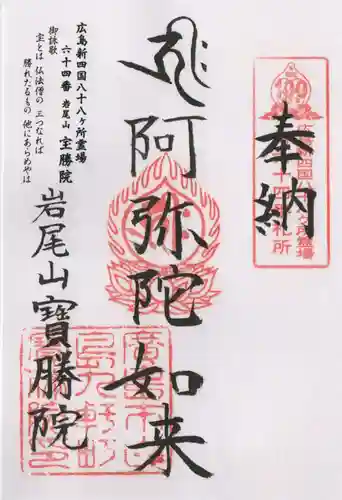 奉納
阿弥陀如来
広島新四国八十八ヶ所霊場
六十四番 岩尾山 宝勝院
御詠歌
宝とは 仏法僧の 三つなれば
勝れたるもの 他にあらめやは
岩尾山寶勝院